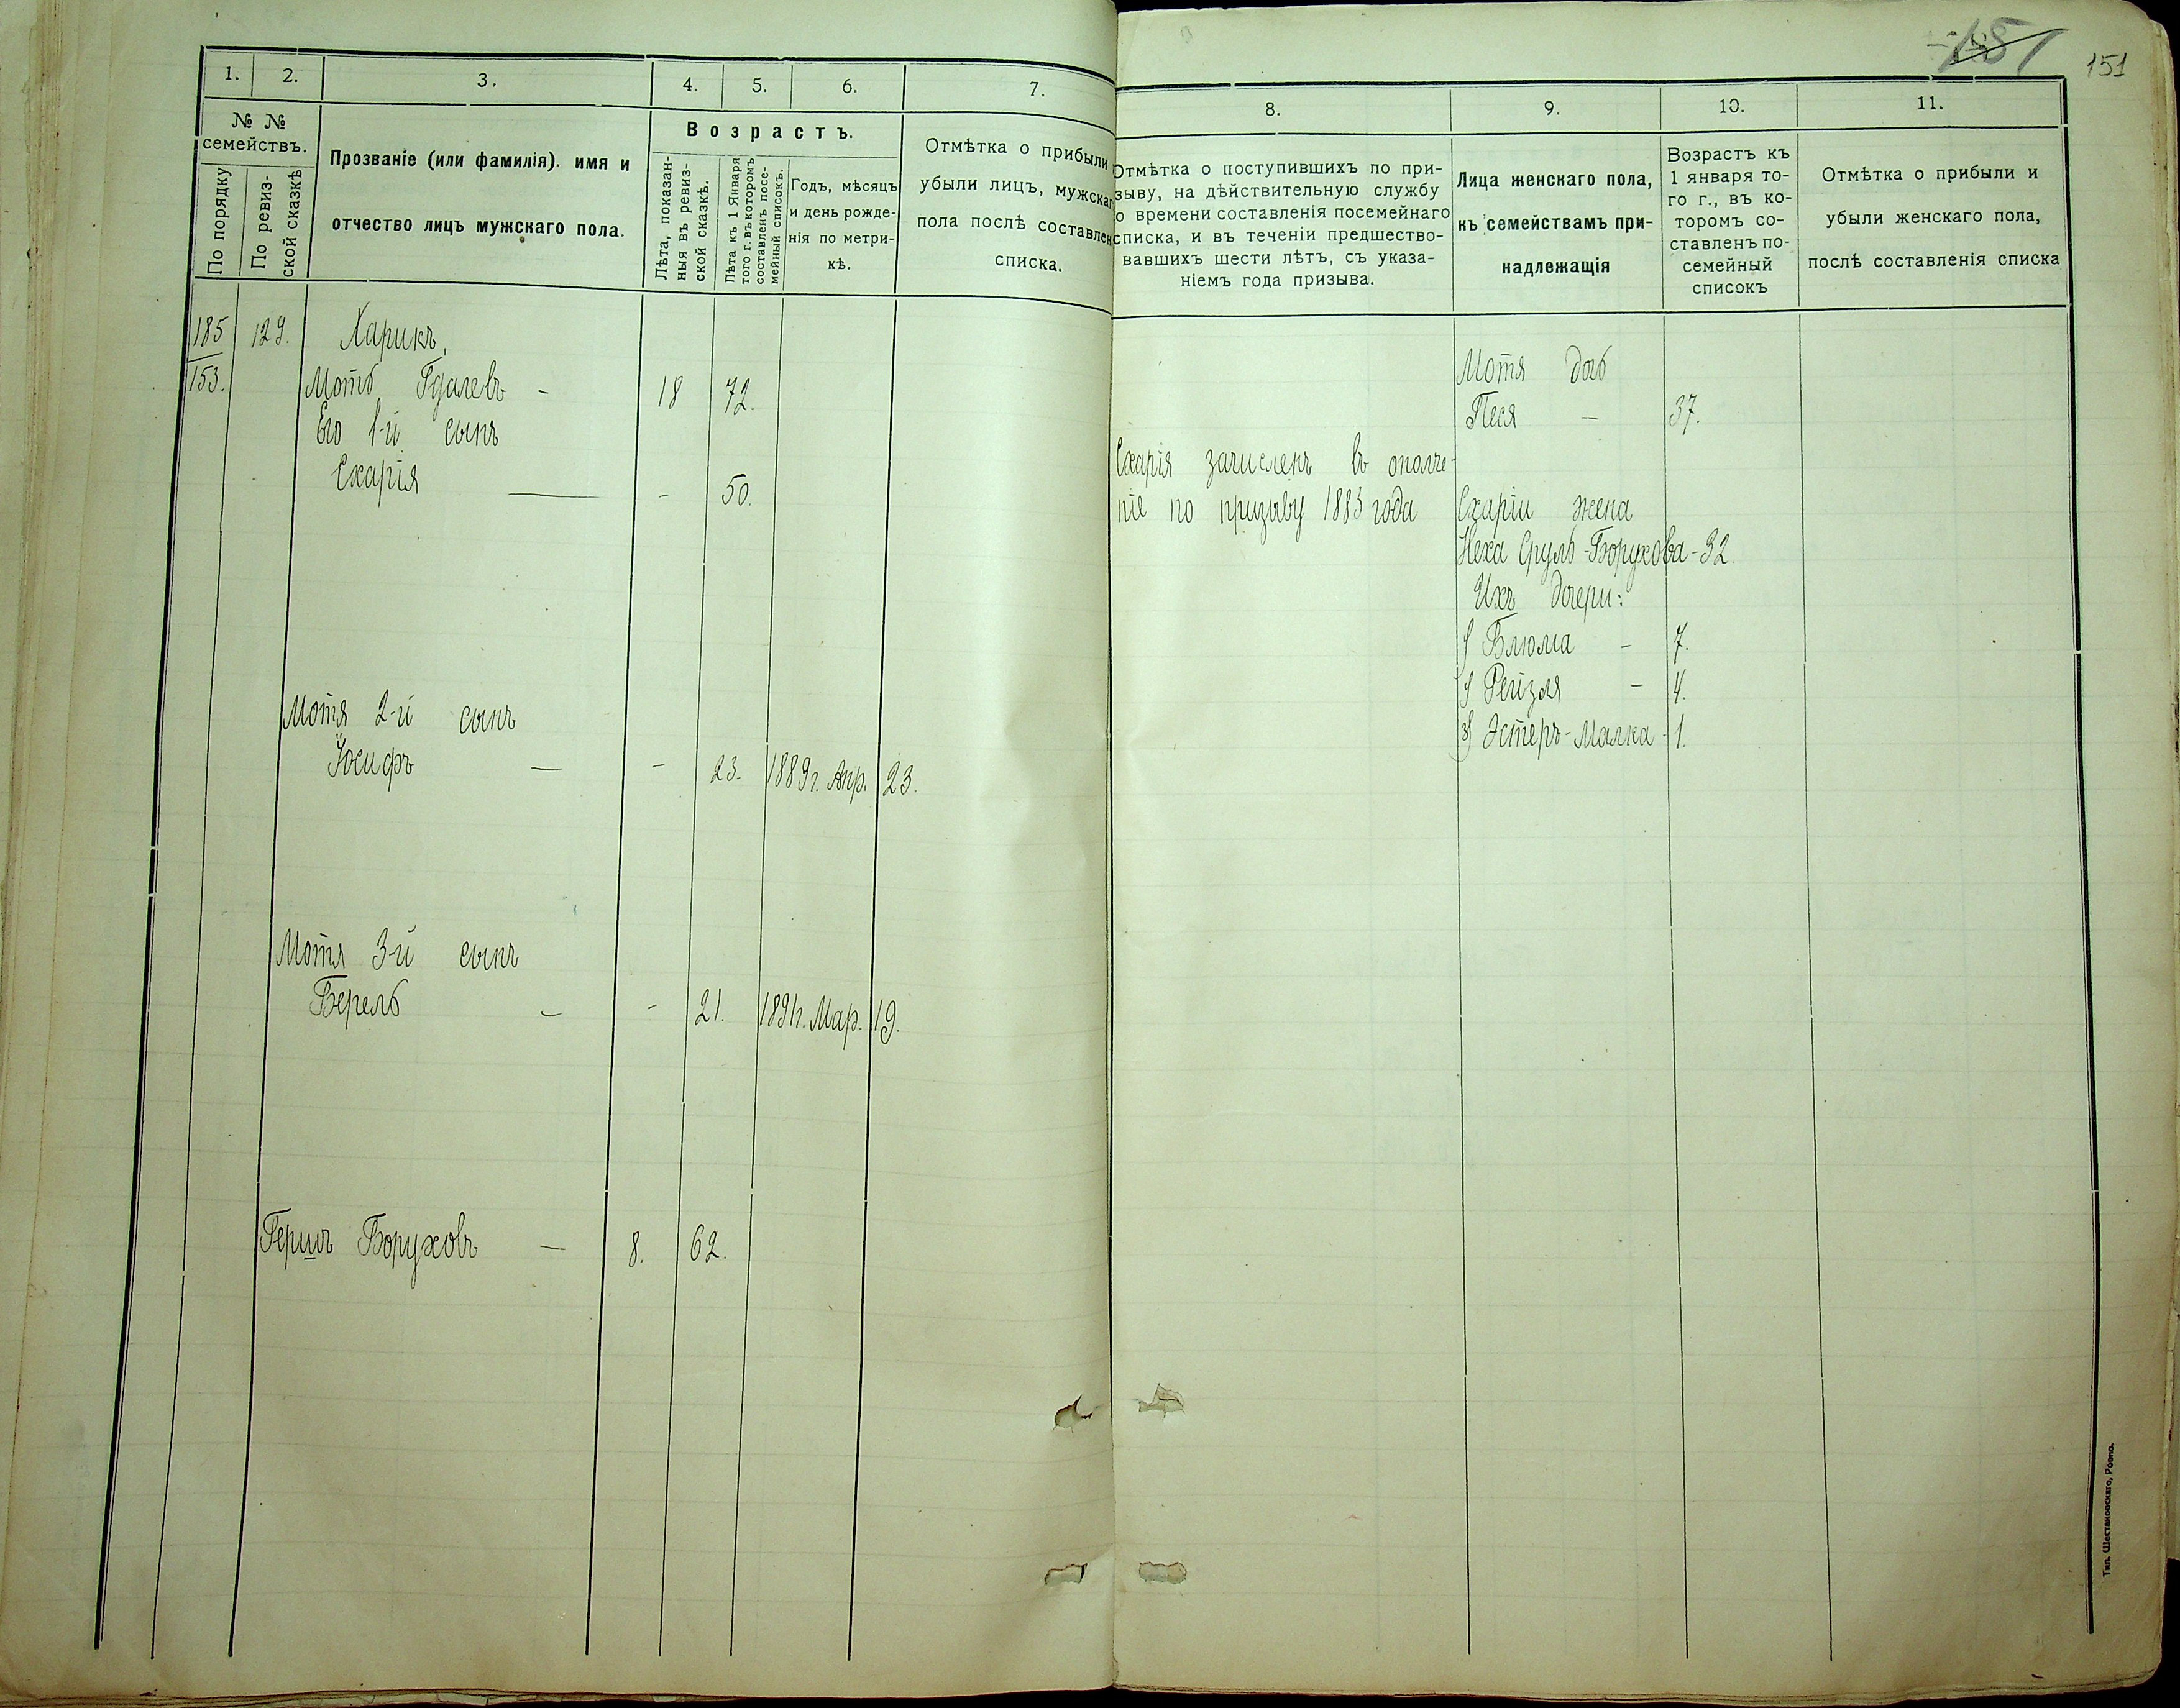 151
151
1. 2. 3. 4. 5. 6. 7.
№ № семействъ.
По порядку
По ревиз-
ской сказкѣ
Прозваніе (или фамилія). имя и
отчество лицъ мужскаго пола.
Возрастъ.
Лѣта, показан-
ныя въ ревиз-
ской сказкѣ.
Лѣта къ 1 Января
того г. въ которомъ
составленъ посе-
мейный списокъ.
Годъ, мѣсяцъ
и день рожде-
нія по метри-
кѣ.
Отмѣтка о прибыли
убыли лицъ, мужскаг
пола послѣ составлен
списка.
185 129. Харикъ,
153. Моть Гдалевъ - 18 72.
Его 1-й сынъ
Схарія — - 50.
Мотя 2-й сынъ
Іосифъ — - 23. 1889г. Апр. 23.
Мотя 3-й сынъ
Берель - - 21. 1891г. Мар. 19.
Гершъ Боруховъ — 8. 62.
8. 9. 10. 11.
Отмѣтка о поступившихъ по при-
зыву, на дѣйствительную службу
о времени составленія посемейнаго
списка, и въ теченіи предшество-
вавшихъ шести лѣтъ, съ указа-
ніемъ года призыва.
Лица женскаго пола,
къ семействамъ при-
надлежащія
Возрастъ къ
1 января то-
го г., въ ко-
торомъ со-
ставленъ по-
семейный
списокъ
Отмѣтка о прибыли и
убыли женскаго пола,
послѣ составленія списка
Схарія зачисленъ въ ополче-
ніе по призыву 1883 года
Мотя дочь
Песя - 37.
Схаріи жена
Неха Сруль-Борухова - 32.
Ихъ дочери:
Блюма - 7.
Рейзля - 4.
3) Эстеръ-Малка - 1.
Тип. Шестаковскаго, Ровно.